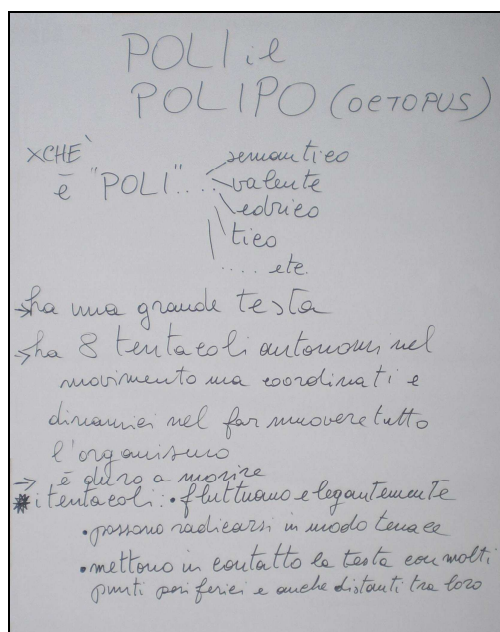 POLI il
POLIPO (OCTOPUS)
XCHE`
è "POLI"....
semantico
valente
edrico
tico
.... etc.
→ha una grande testa
→ha 8 tentacoli autonomi nel
movimento ma coordinati e
dinamici nel far muovere tutto
l'organismo
→ è duro a morire
* i tentacoli: • fluttuano elegantemente
• possono radicarsi in modo tenace
• mettono in contatto la testa con molti
punti periferici e anche distanti tra loro